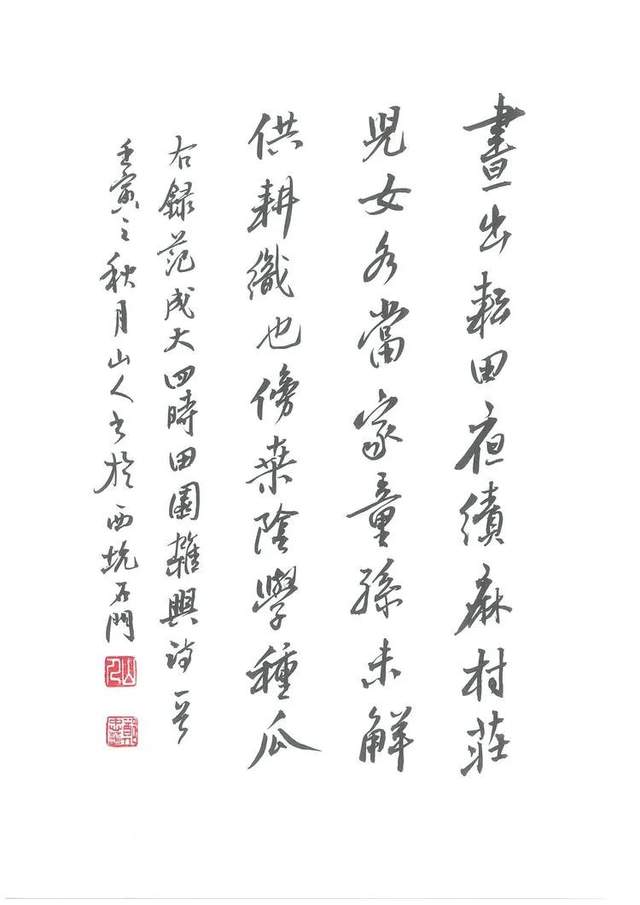 晝出耘田夜績麻村莊
兒女各當家童孫未解
供耕織也傍桑陰學種瓜
右録范成大四時田園雜興詩一首
壬寅之秋月山人書於西坑石門
山人